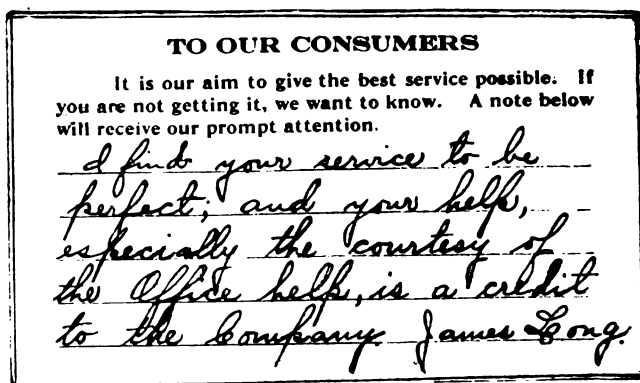 TO OUR CONSUMERS
It is our aim to give the best service possible. If
you are not getting it, we want to know. A note below
will receive our prompt attention.
I find your service to be
perfect; and your help,
especially the courtesy of
the Office help, is a credit
to the Company. James Long.